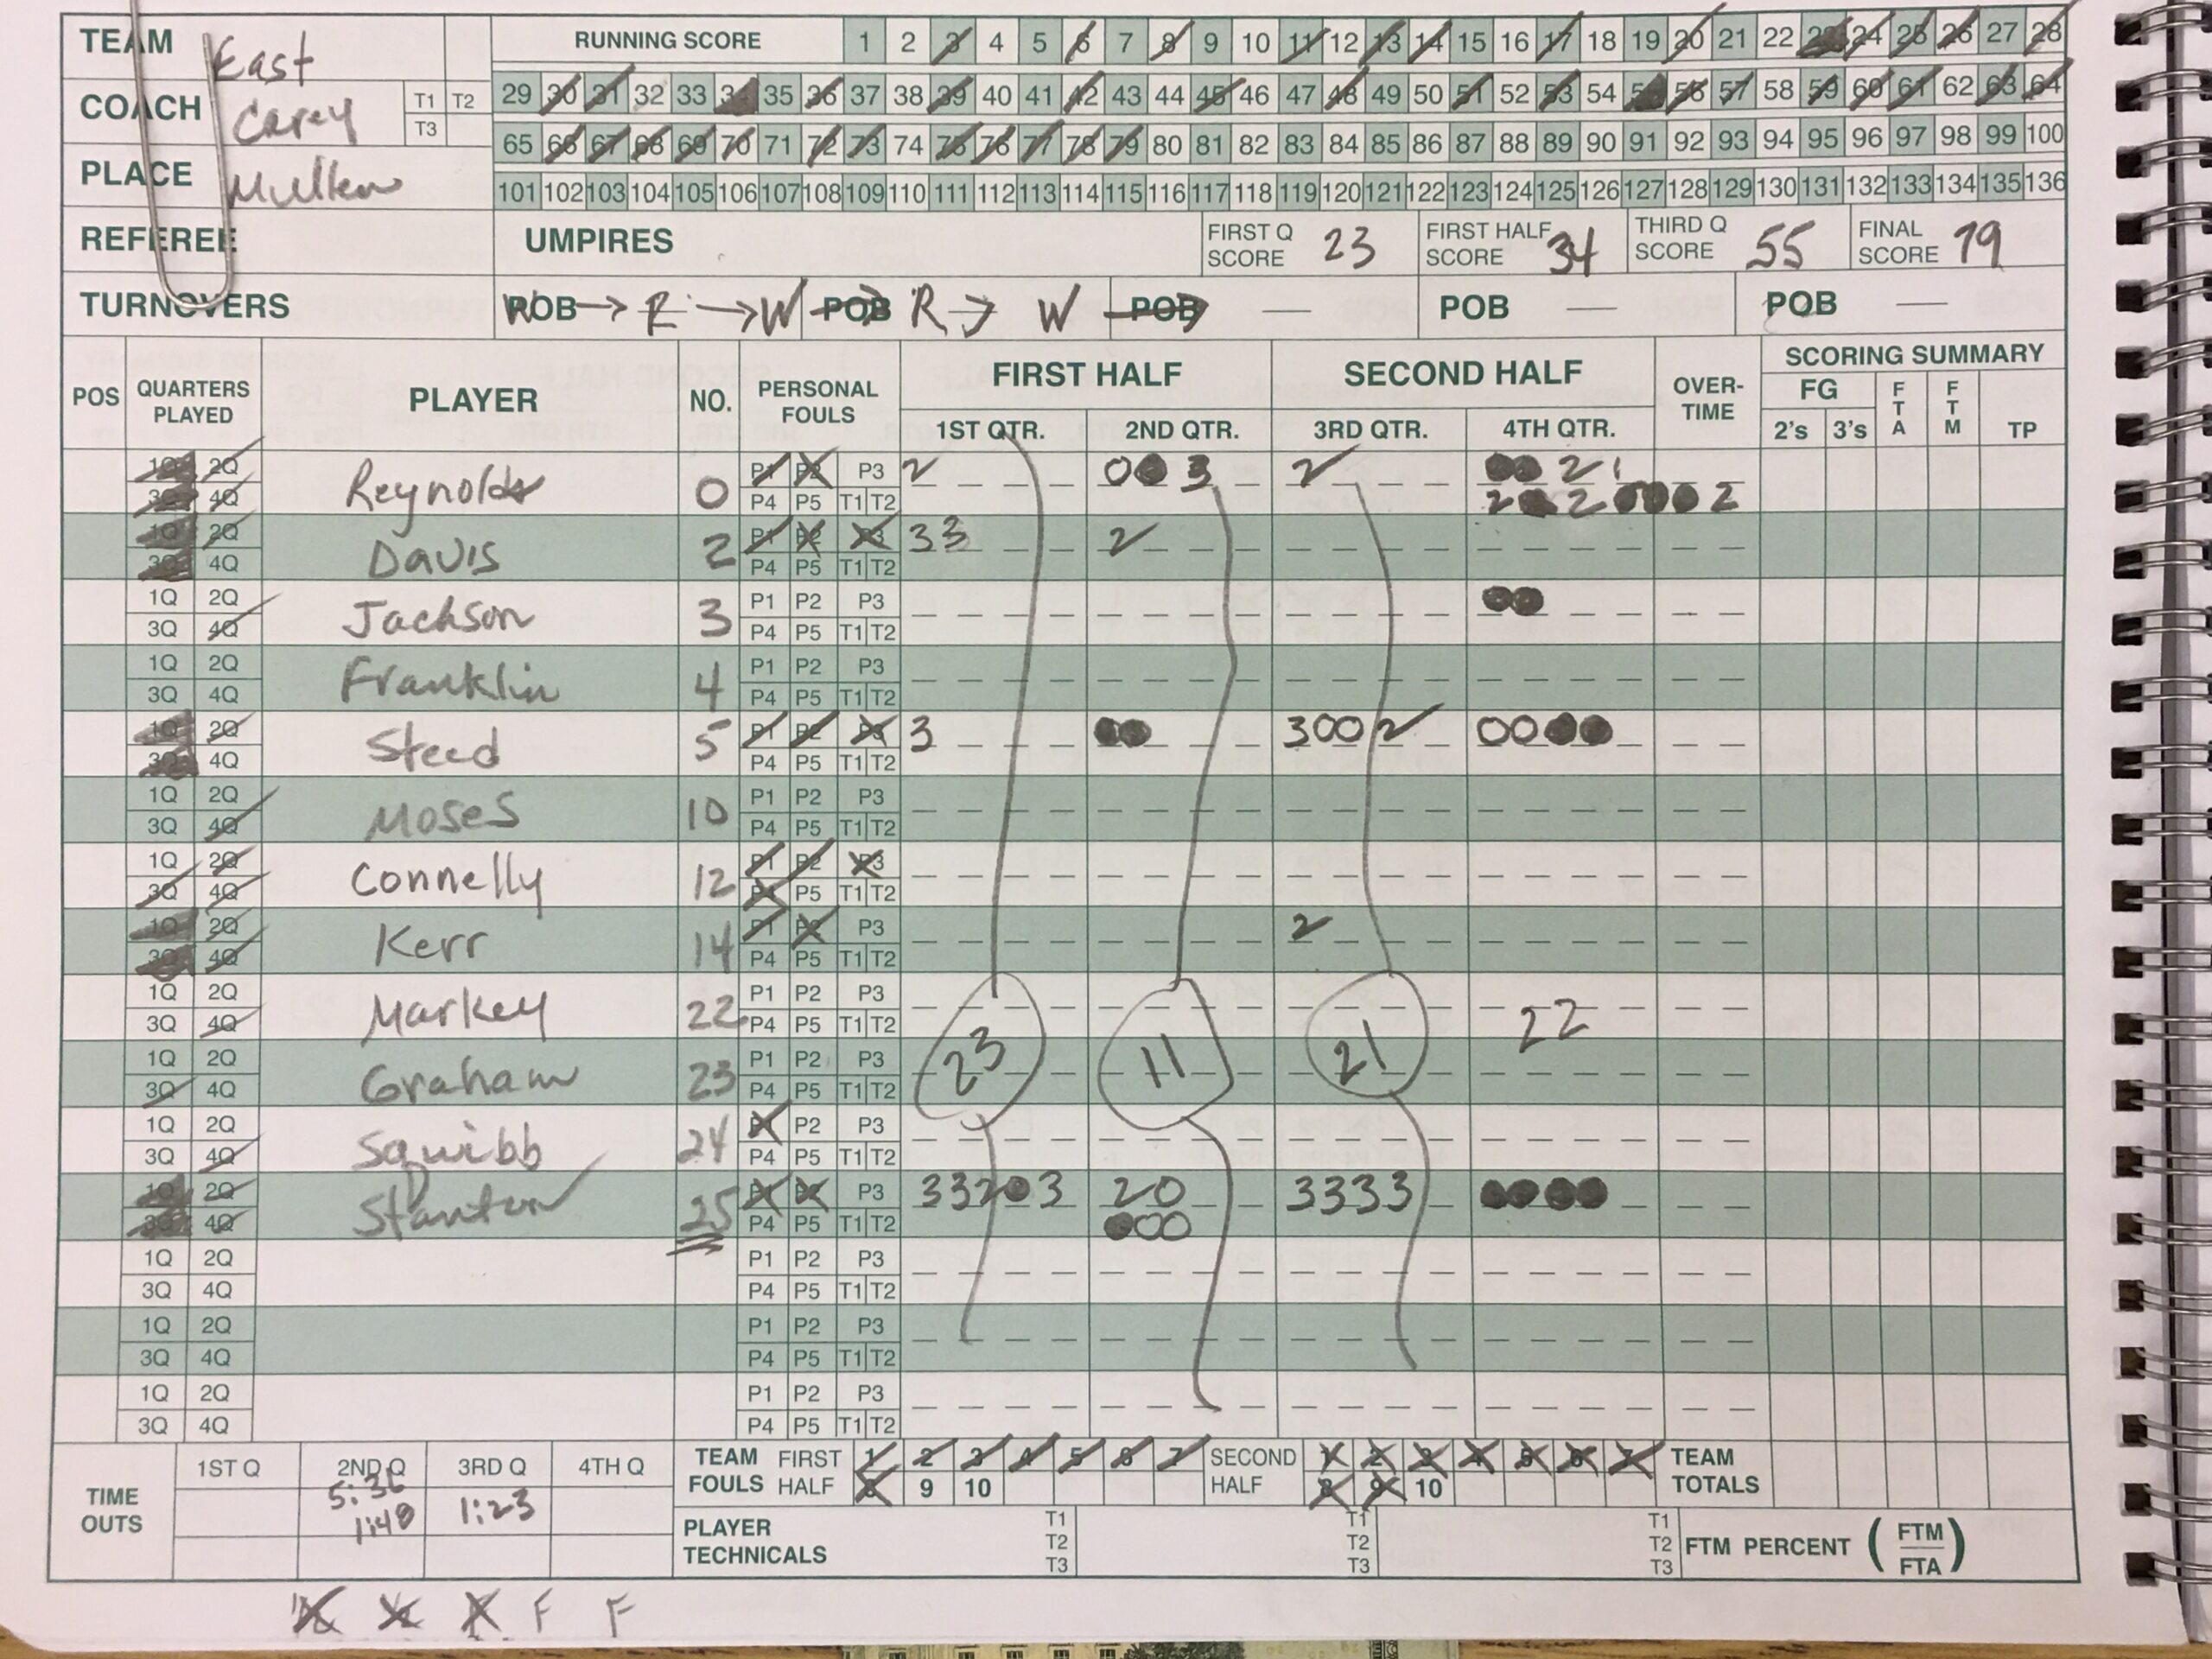 TEAM East RUNNING SCORE 1 2 3 4 5 6 7 8 9 10 11 12 13 14 15 16 17 18 19 20 21 22 23 24 25 26 27 28
COACH Carey T1 T2 T3 29 30 31 32 33 34 35 36 37 38 39 40 41 42 43 44 45 46 47 48 49 50 51 52 53 54 55 56 57 58 59 60 61 62 63 64
65 66 67 68 69 70 71 72 73 74 75 76 77 78 79 80 81 82 83 84 85 86 87 88 89 90 91 92 93 94 95 96 97 98 99 100
PLACE Mullen 101 102 103 104 105 106 107 108 109 110 111 112 113 114 115 116 117 118 119 120 121 122 123 124 125 126 127 128 129 130 131 132 133 134 135 136
REFEREE UMPIRES FIRST Q SCORE 23 FIRST HALF SCORE 34 THIRD Q SCORE 55 FINAL SCORE 79
TURNOVERS POB → R → W POB R → W POB POB POB
POS QUARTERS PLAYED PLAYER NO. PERSONAL FOULS FIRST HALF SECOND HALF OVER-TIME SCORING SUMMARY
FG FTA FTM TP
1ST QTR. 2ND QTR. 3RD QTR. 4TH QTR. 2's 3's
1Q 2Q Reynolds 0 P1 P2 P3 2 0 0 3 2 2 1
3Q 4Q P4 P5 T1 T2 2 2 2
1Q 2Q Davis 2 P1 P2 P3 3 3 2
3Q 4Q P4 P5 T1 T2
1Q 2Q Jackson 3 P1 P2 P3
3Q 4Q P4 P5 T1 T2
1Q 2Q Franklin 4 P1 P2 P3
3Q 4Q P4 P5 T1 T2
1Q 2Q Steed 5 P1 P2 P3 3 3 0 0 2 0 0
3Q 4Q P4 P5 T1 T2
1Q 2Q Moses 10 P1 P2 P3
3Q 4Q P4 P5 T1 T2
1Q 2Q Connelly 12 P1 P2 P3
3Q 4Q P4 P5 T1 T2
1Q 2Q Kerr 14 P1 P2 P3 2
3Q 4Q P4 P5 T1 T2
1Q 2Q Markey 22 P1 P2 P3 2 2
3Q 4Q P4 P5 T1 T2
1Q 2Q Graham 23 P1 P2 P3 23 11 21
3Q 4Q P4 P5 T1 T2
1Q 2Q Squibb 24 P1 P2 P3
3Q 4Q P4 P5 T1 T2
1Q 2Q Stanton 25 P1 P2 P3 3 3 2 3 2 0 3 3 3 3
3Q 4Q P4 P5 T1 T2 0 0
1Q 2Q P1 P2 P3
3Q 4Q P4 P5 T1 T2
1Q 2Q P1 P2 P3
3Q 4Q P4 P5 T1 T2
1Q 2Q P1 P2 P3
3Q 4Q P4 P5 T1 T2
TIME OUTS 1ST Q 2ND Q 3RD Q 4TH Q TEAM FOULS FIRST HALF 1 2 3 4 5 6 7 SECOND HALF 1 2 3 4 5 6 7 TEAM TOTALS
5:36 8 9 10 8 9 10
1:48 1:23 PLAYER TECHNICALS T1 T2 T3 T1 T2 T3 T1 T2 T3 FTM PERCENT ( FTM / FTA )
F F